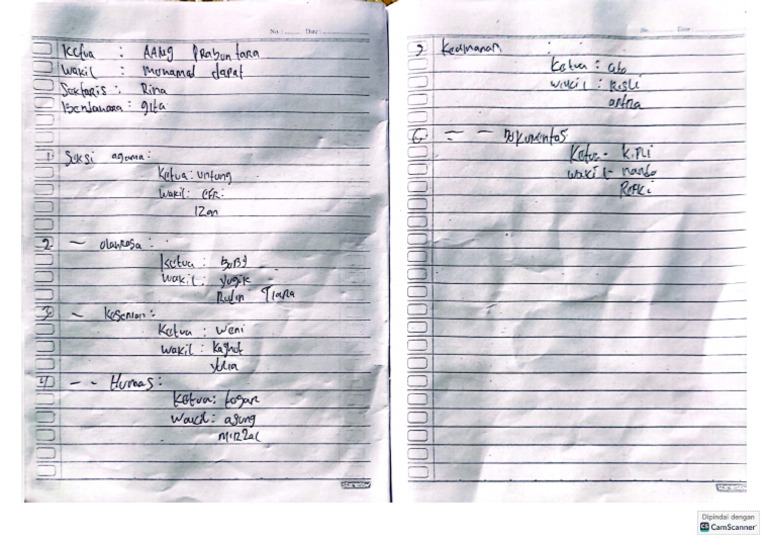 No : Date :
Ketua : AANG Prabuntara
Wakil : Mohamad dapat
Sektaris : Rina
Bendahara : gita
1. Seksi agama :
Ketua : untung
Wakil :
Izan
2. — olahraga :
Ketua : BoBy
Wakil : yogik
Tiara
3. — Kesenian :
Ketua : Weni
Wakil :
yulia
4. — - Humas :
Ketua :
Wakil : agung
No. Date :
5 Keamanan :
Ketua :
Wakil : Riski
6. — — Dokumentas
Ketua - KiPli
Wakil - nando
Refki
Dipindai dengan
CS CamScanner